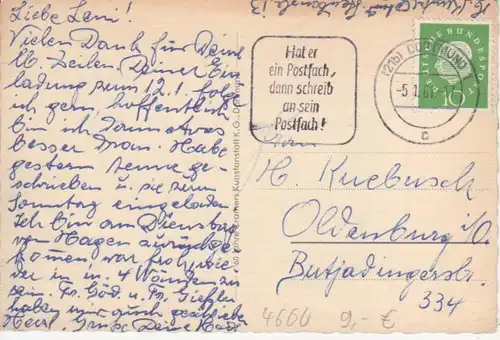 Liebe Leni!
Vielen Dank für Deine
lb. Zeilen Deiner Ein-
ladung zum 12.1. folge
ich gern, hoffentlich
bin ich dann etwas
besser dran. Habe
gestern geschrieben
u. sie zum
Sonntag eingeladen
Ich bin am Dienstag
von Hagen zurückge-
kommen war froh wie
der in m. 4 Wänden zu
sein Fr. u. Fr.
haben mir auch geschrieben
Herzl. Grüße Deine
Hat er
ein Postfach,
dann schreib
an sein
Postfach!
(21b) DORTMUND 1
-5.1.61
c
DEUTSCHE BUNDESPOST
10
H. Kuebusch
Oldenburg i/O.
Butjadingerstr.
334
4600 9,- €
Kunstanstalt K.G.,